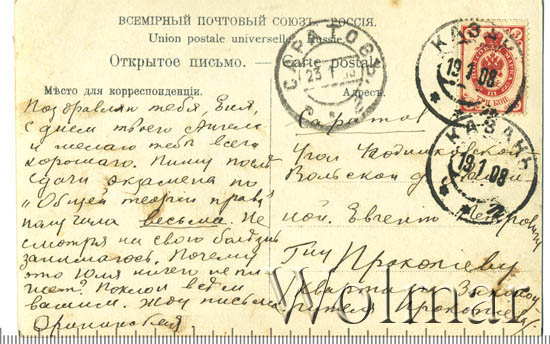 ВСЕМІРНЫЙ ПОЧТОВЫЙ СОЮЗЪ. РОССІЯ.
Union postale universelle. Russie.
Открытое письмо. — Carte postale
Мѣсто для корреспонденціи.
Адресъ.
Поздравляю тебя, Женя,
с днем твоего Ангела
и желаю тебе всего
хорошаго. Пишу после
сдачи экзамена по
"Общей теории права"
получила весьма. Не
смотря на свою болезнь
занималась. Почему
это Юля ничего не пи
шет? Поклон всем
вашим. Жду письма
Саратов
Угол
Вольской
Евгении Петровичу
Гну Прокопьеву
квартира
Прокопьеву
САРАТОВЪ
23 1 08
2
КАЗАНЬ
19 1 08
КАЗАНЬ
19 1 08
ТРИ КОП.
Wolmar